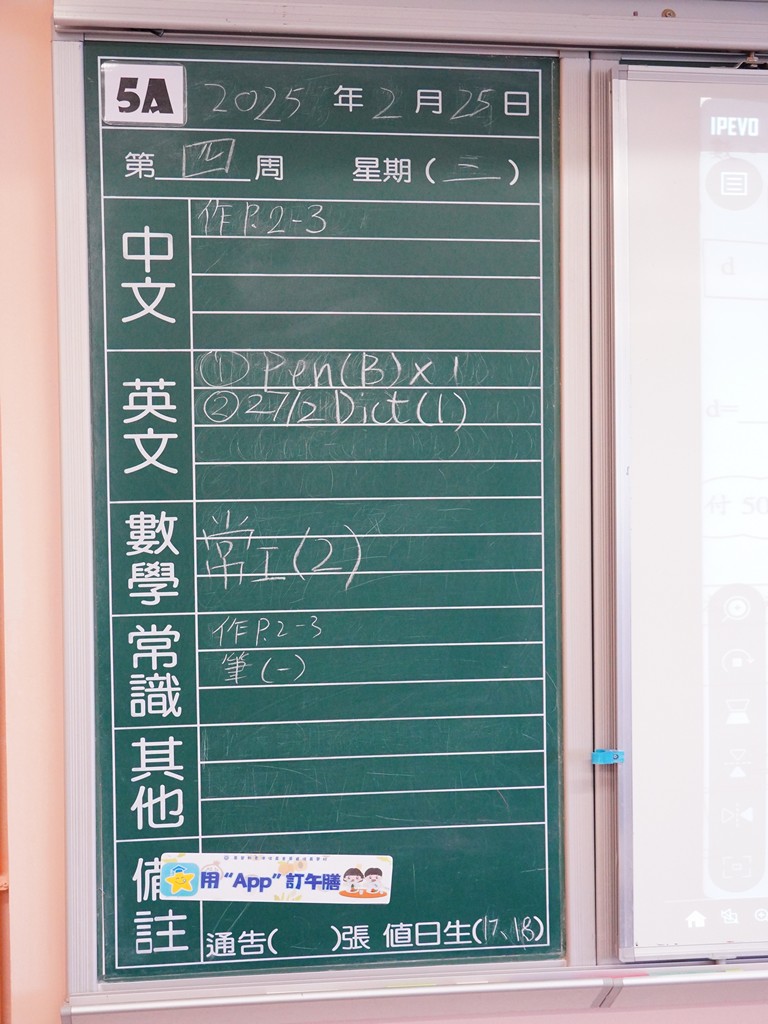 5A 2025 年 2 月 25 日
第 四 周 星期 ( 三 )
中文
作 P.2-3
英文
① Pen(B) x 1
② 27/2 Dict (1)
數學
常工(2)
常識
作 P.2-3
筆 (一)
其他
備註
用 “App” 訂午膳
通告( )張 值日生(17、18)
IPEVO
d
d=
付 50